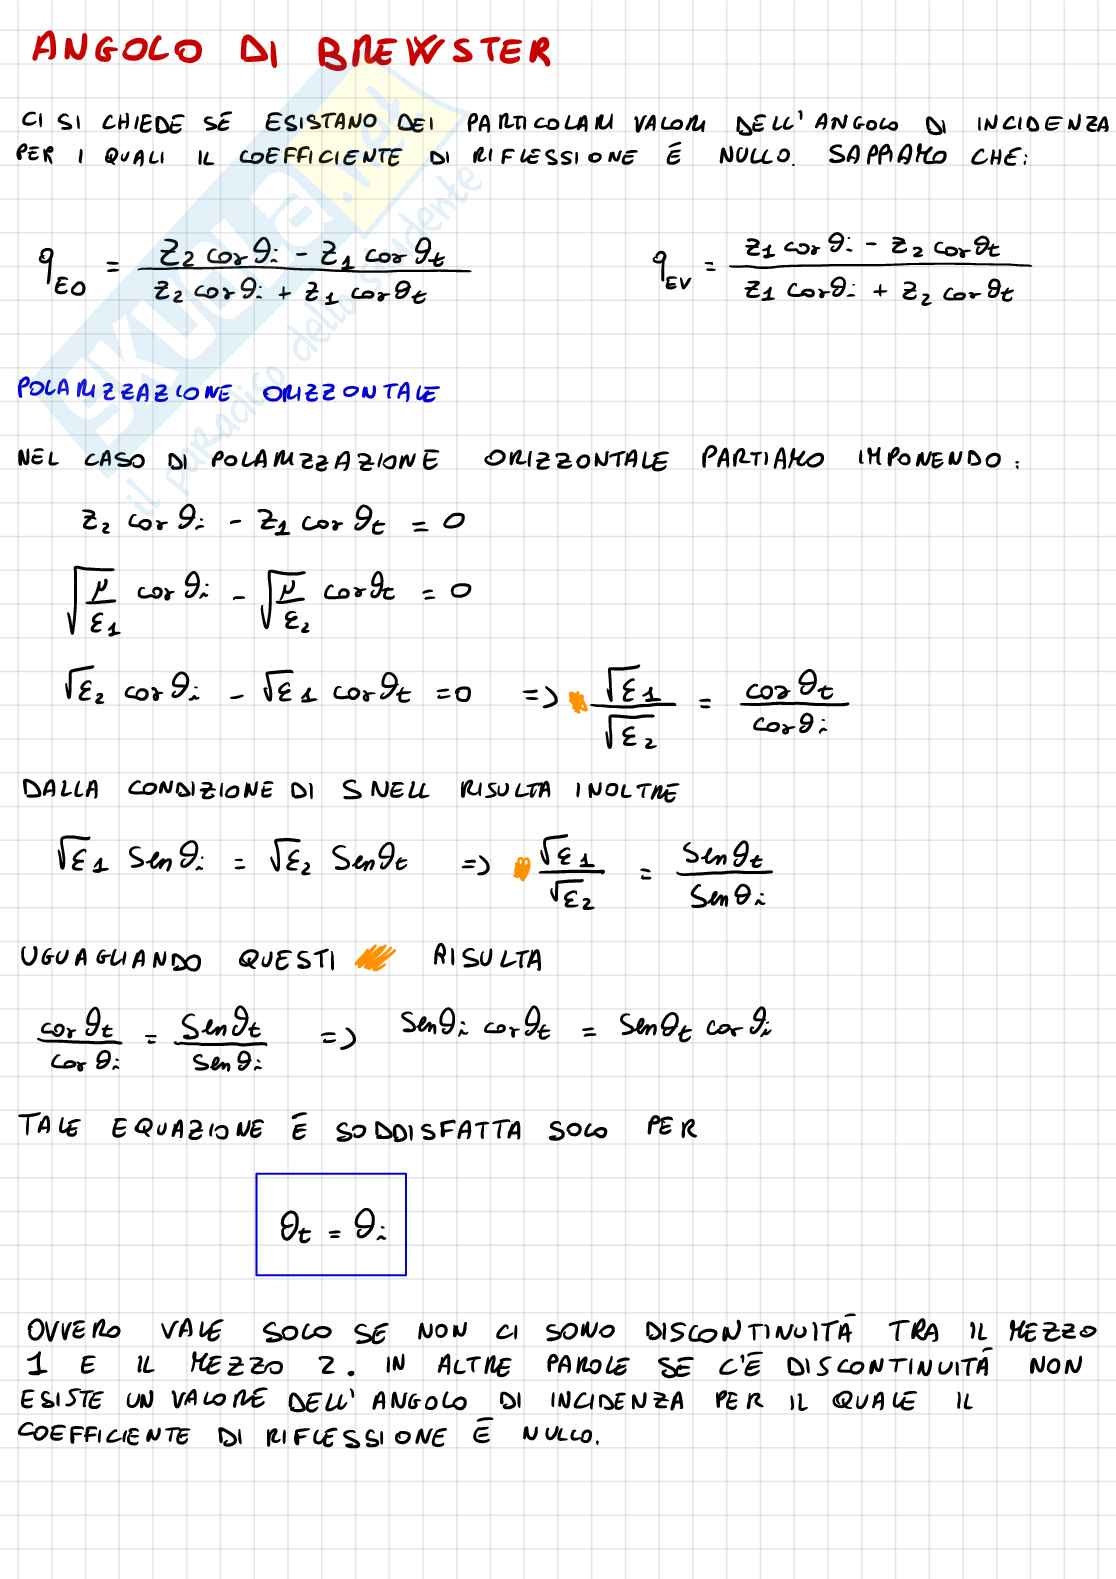 ANGOLO DI BREWSTER
CI SI CHIEDE SE ESISTANO DEI PARTICOLARI VALORI DELL'ANGOLO DI INCIDENZA
PER I QUALI IL COEFFICIENTE DI RIFLESSIONE È NULLO. SAPPIAMO CHE:
q_EO = (Z2 cos θi - Z1 cos θt) / (Z2 cos θi + Z1 cos θt)    q_EV = (Z1 cos θi - Z2 cos θt) / (Z1 cos θi + Z2 cos θt)
POLARIZZAZIONE ORIZZONTALE
NEL CASO DI POLARIZZAZIONE ORIZZONTALE PARTIAMO IMPONENDO:
Z2 cos θi - Z1 cos θt = 0
√(μ/ε1) cos θi - √(μ/ε2) cos θt = 0
√ε2 cos θi - √ε1 cos θt = 0 => √ε1 / √ε2 = cos θt / cos θi
DALLA CONDIZIONE DI SNELL RISULTA INOLTRE
√ε1 Sen θi = √ε2 Sen θt => √ε1 / √ε2 = Sen θt / Sen θi
UGUAGLIANDO QUESTI RISULTA
cos θt / cos θi = Sen θt / Sen θi => Sen θi cos θt = Sen θt cos θi
TALE EQUAZIONE È SODDISFATTA SOLO PER
θt = θi
OVVERO VALE SOLO SE NON CI SONO DISCONTINUITÀ TRA IL MEZZO
1 E IL MEZZO 2. IN ALTRE PAROLE SE C'È DISCONTINUITÀ NON
ESISTE UN VALORE DELL'ANGOLO DI INCIDENZA PER IL QUALE IL
COEFFICIENTE DI RIFLESSIONE È NULLO.
SKUOLA.net
il paradiso dello studente